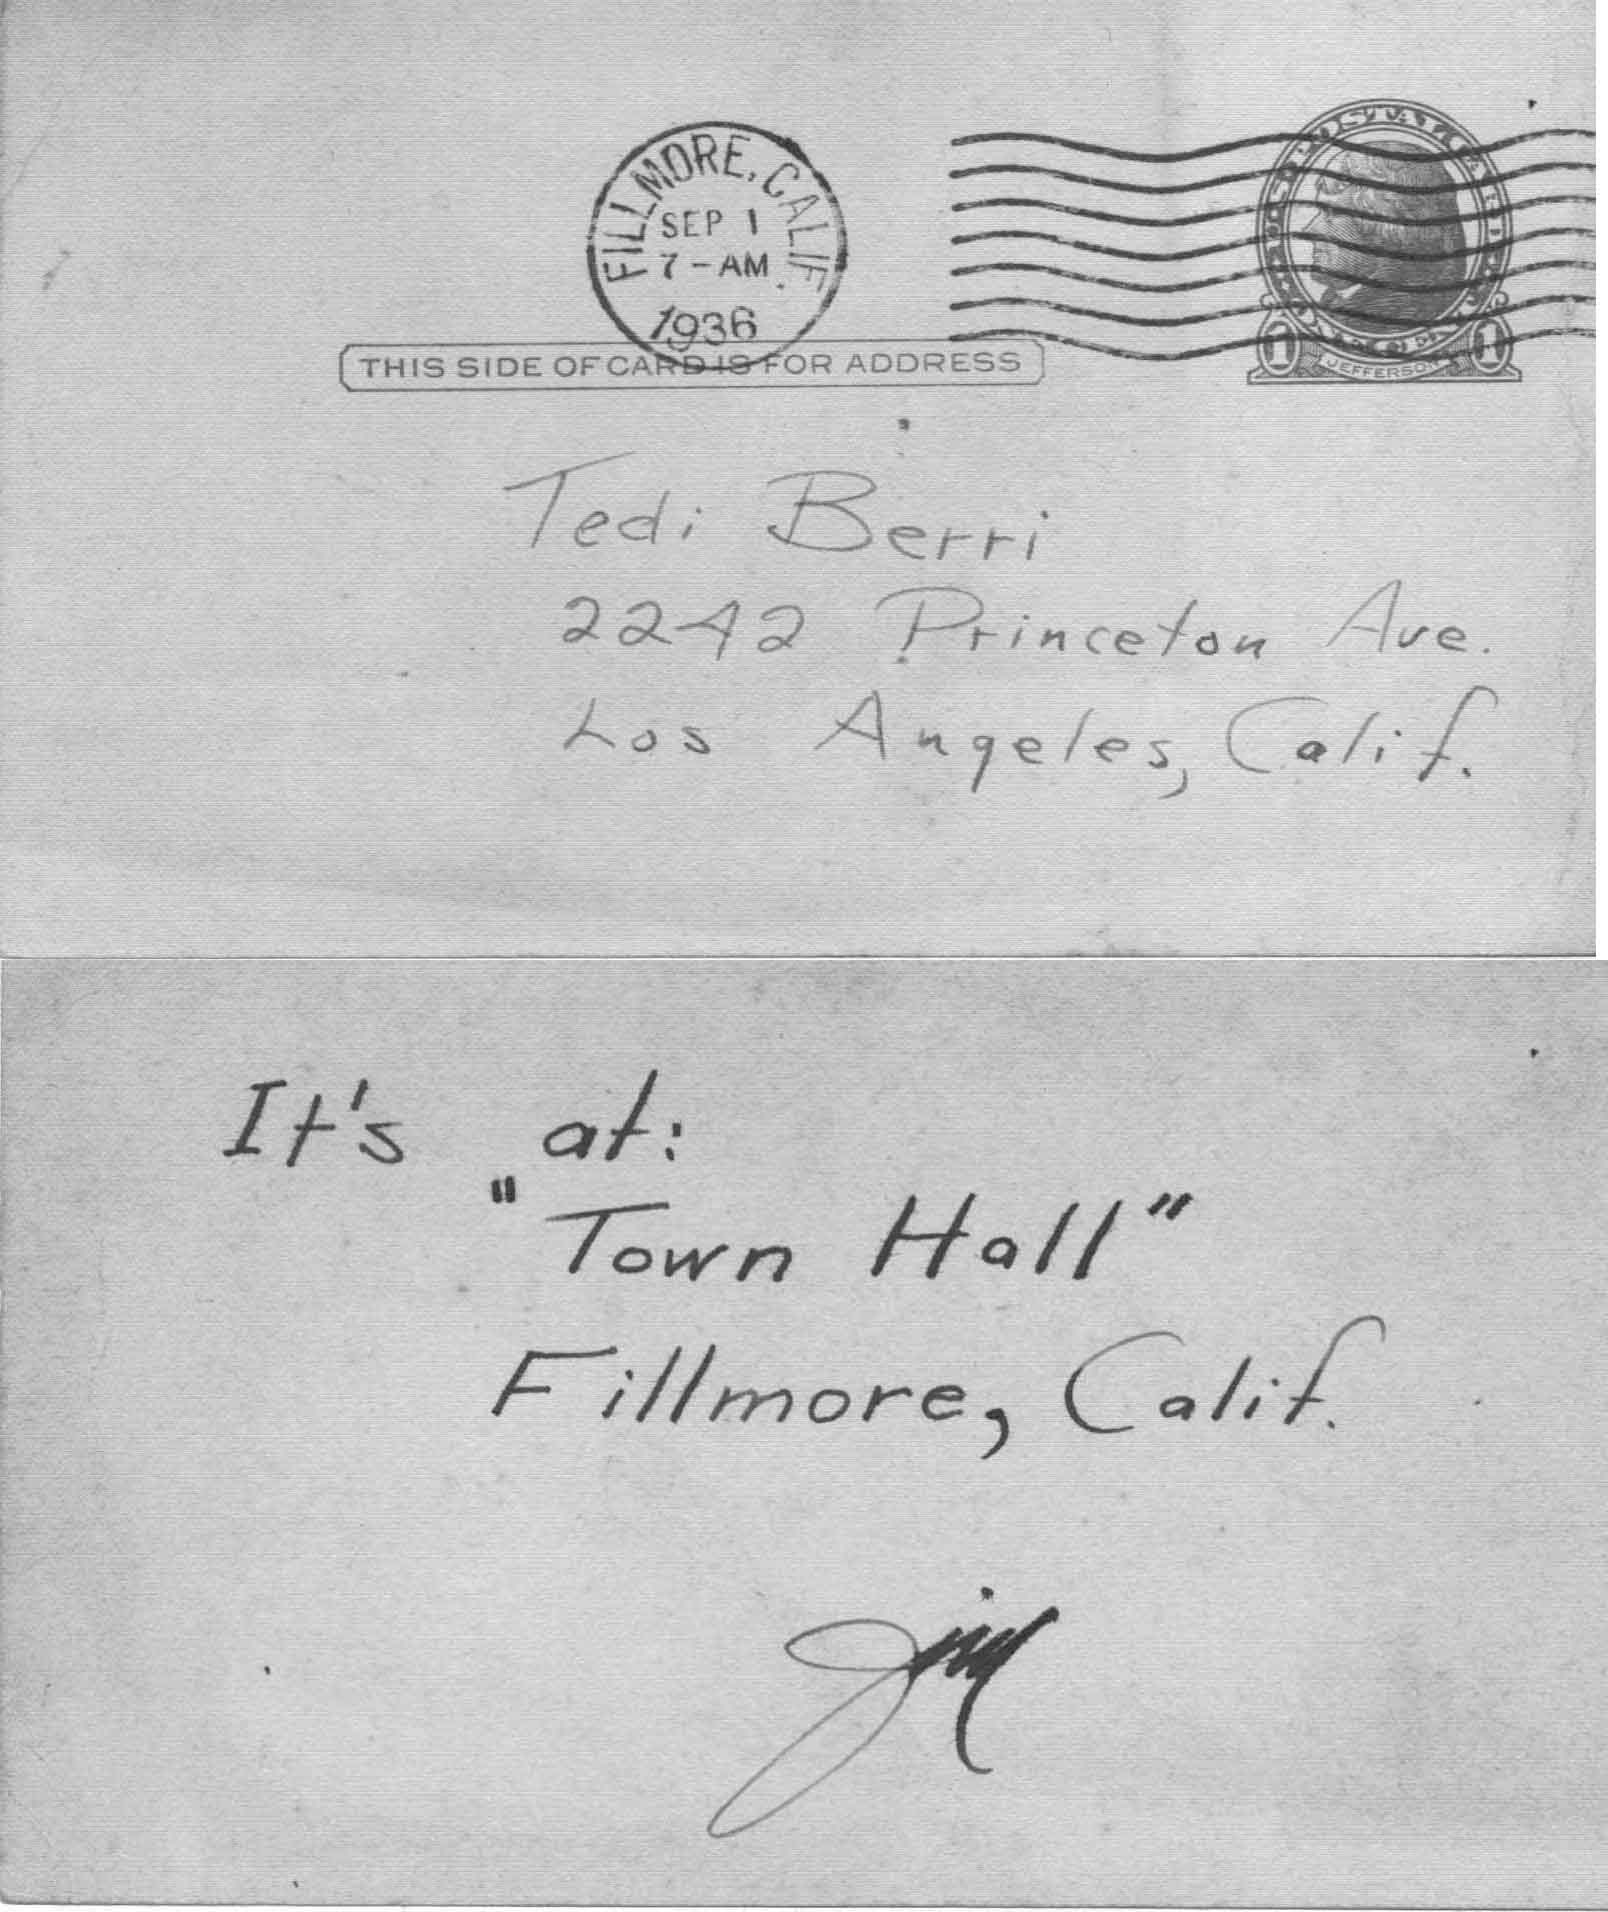 FILLMORE, CALIF.
SEP 1
7-AM
1936
THIS SIDE OF CARD IS FOR ADDRESS
1 JEFFERSON 1
Tedi Berri
2242 Princeton Ave.
Los Angeles, Calif.
It's at:
"Town Hall"
Fillmore, Calif.